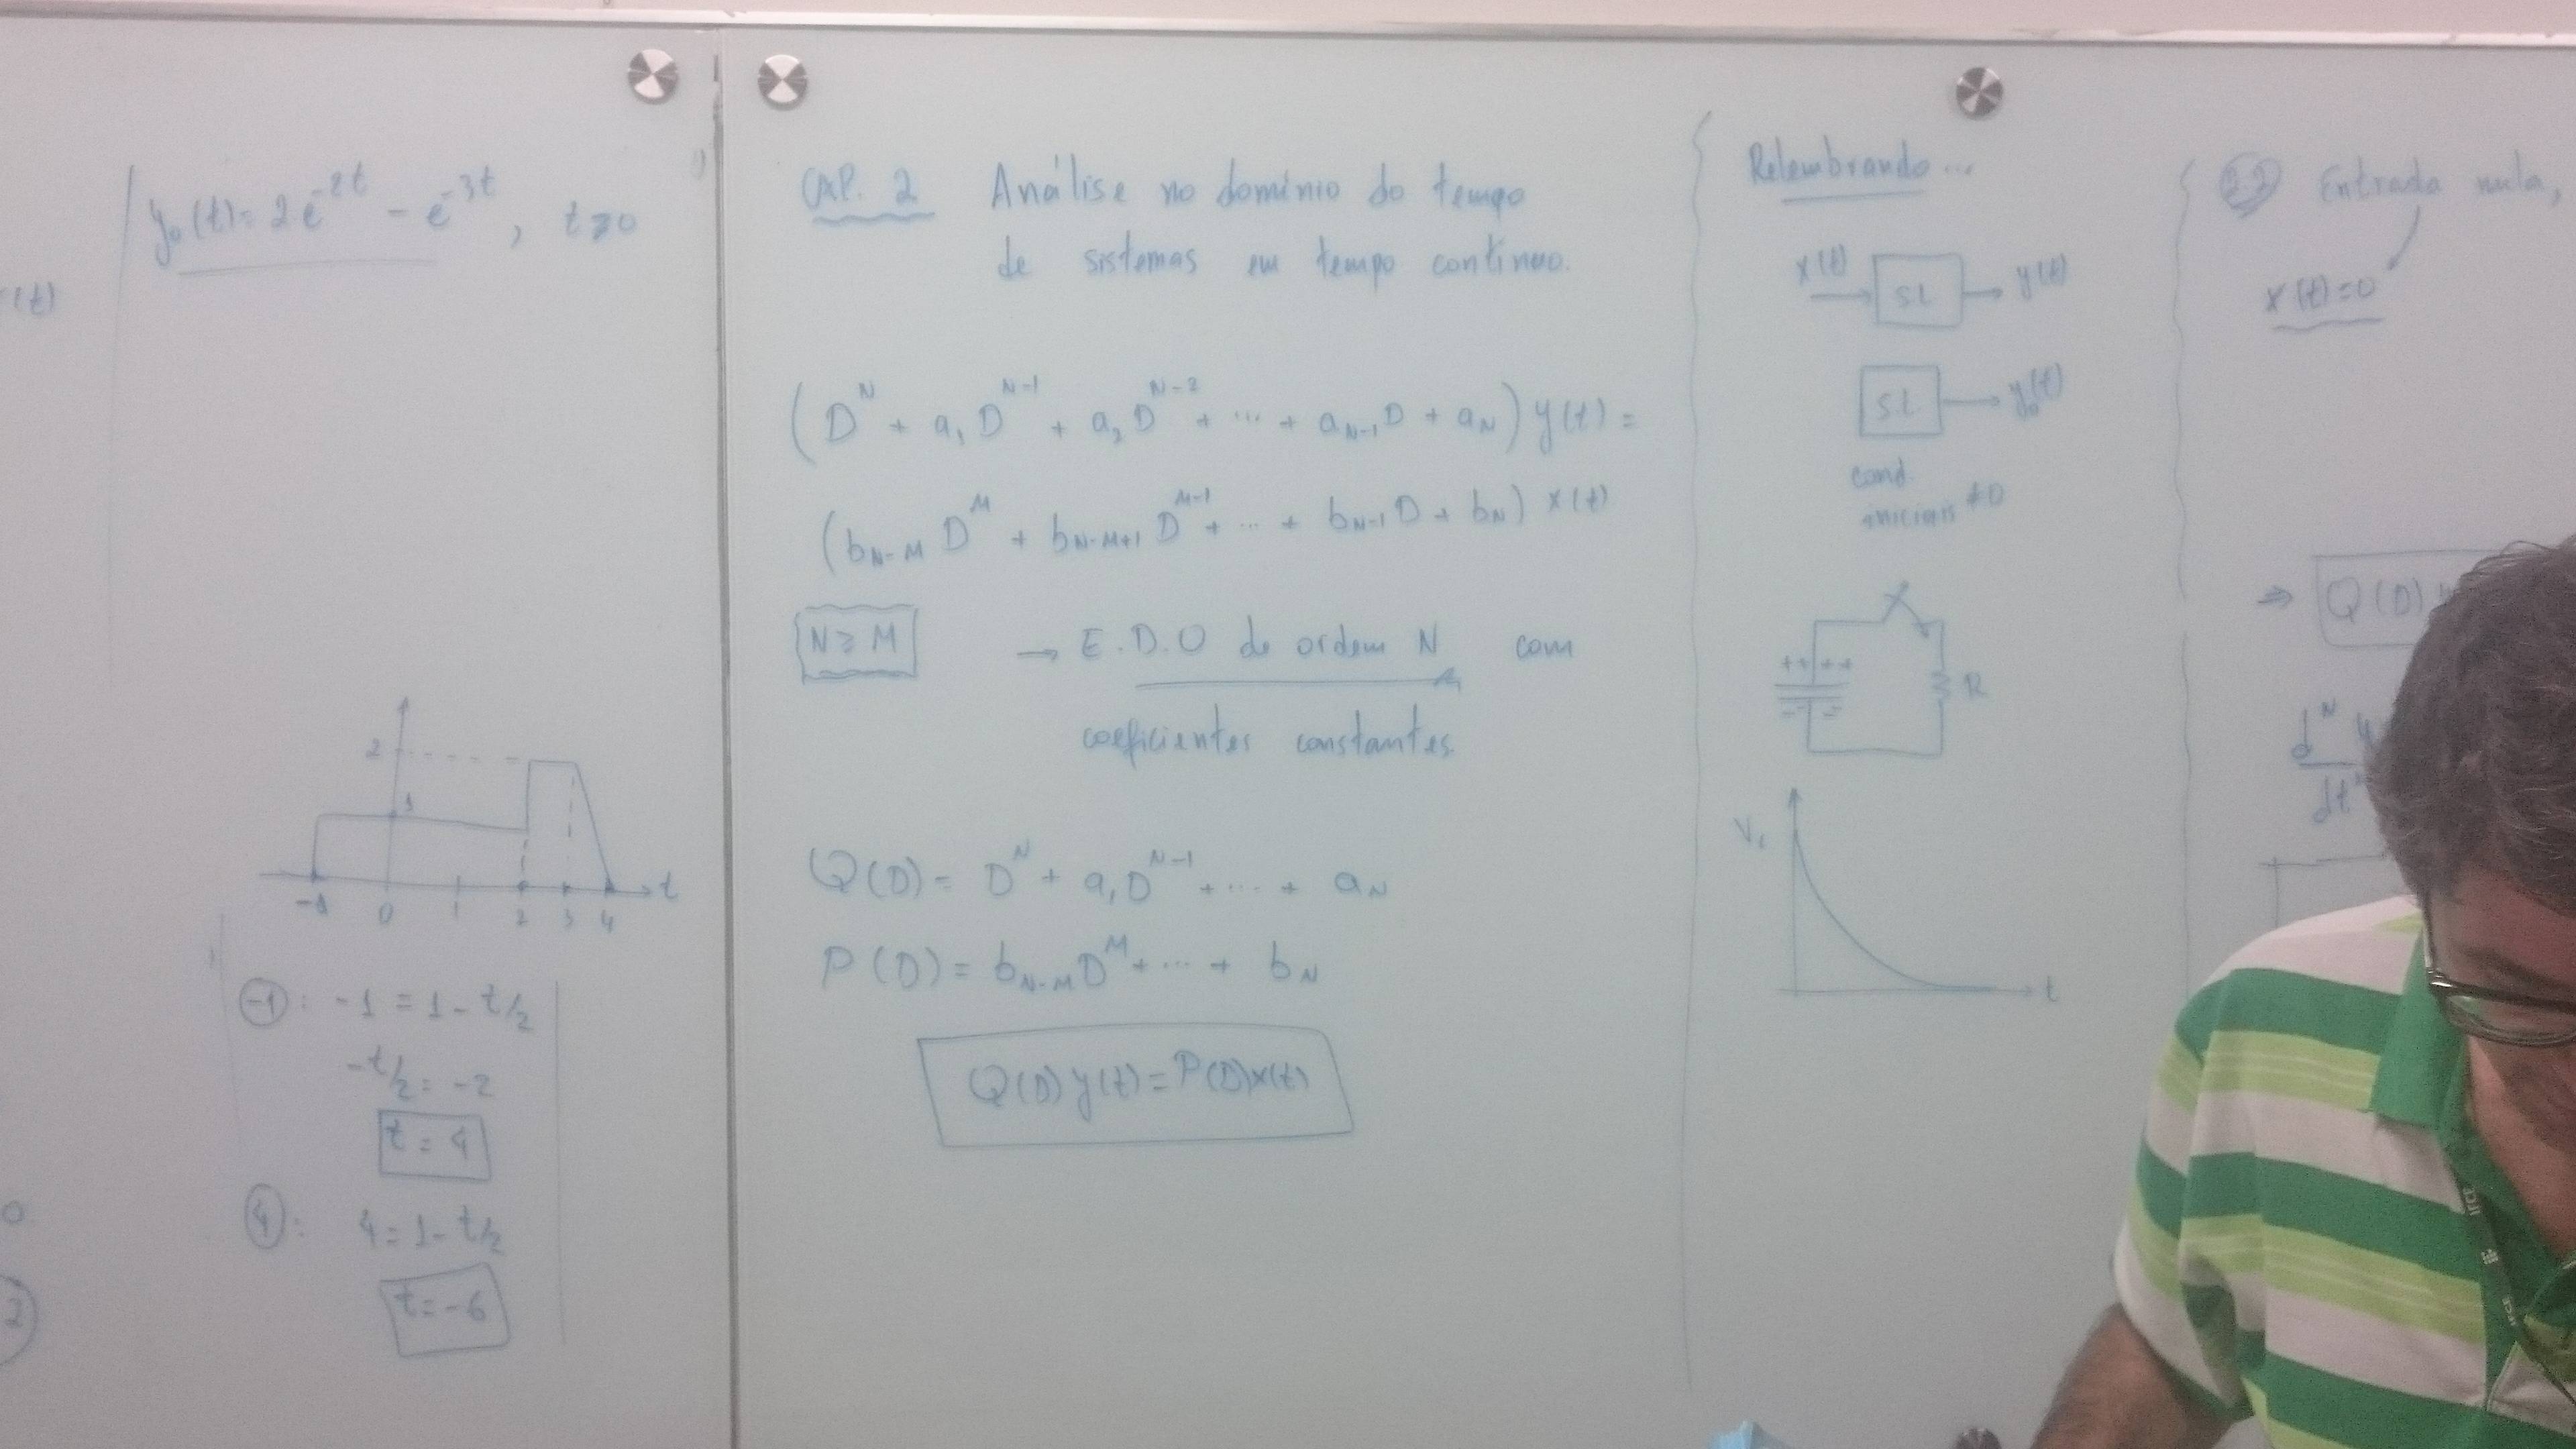 (t)
y₀(t) = 2e^{-2t} - e^{-3t}, t ≥ 0
2
1
-1 0 1 2 3 4 t
(-1): -1 = 1 - t/2
-t/2 = -2
t = 4
(4): 4 = 1 - t/2
t = -6
0
2
CAP. 2 Análise no domínio do tempo
de sistemas em tempo contínuo.
(D^N + a₁D^{N-1} + a₂D^{N-2} + ... + a_{N-1}D + a_N) y(t) =
(b_{N-M} D^M + b_{N-M+1} D^{M-1} + ... + b_{N-1}D + b_N) x(t)
N ≥ M → E.D.O de ordem N com
coeficientes constantes.
Q(D) = D^N + a₁D^{N-1} + ... + a_N
P(D) = b_{N-M}D^M + ... + b_N
Q(D) y(t) = P(D)x(t)
Relembrando...
x(t) → S.L → y(t)
S.L. → y₀(t)
cond.
iniciais ≠ 0
++++
R
V
t
2.2 Entrada nula,
x(t) = 0
⇒ Q(D)
d^N y
dt
IFCE